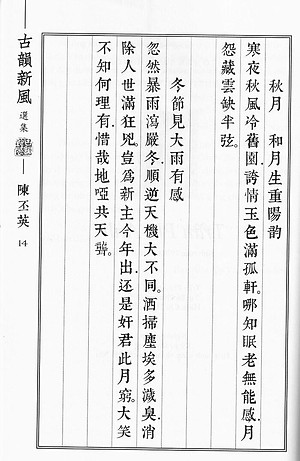 秋月　和月生重陽韵
寒夜秋風冷舊園，誇情玉色滿孤軒。哪知眠老無能感，月
怨藏雲缺半弦。
冬節見大雨有感
忽然暴雨瀉嚴冬，順逆天機大不同。洒掃塵埃多濊臭，消
除人世滿狂兇。豈爲新主今年出，还是奸君此月窮。大笑
不知何理有，惜哉地啞共天聾。
古韻新風
選集
陳丕英
14